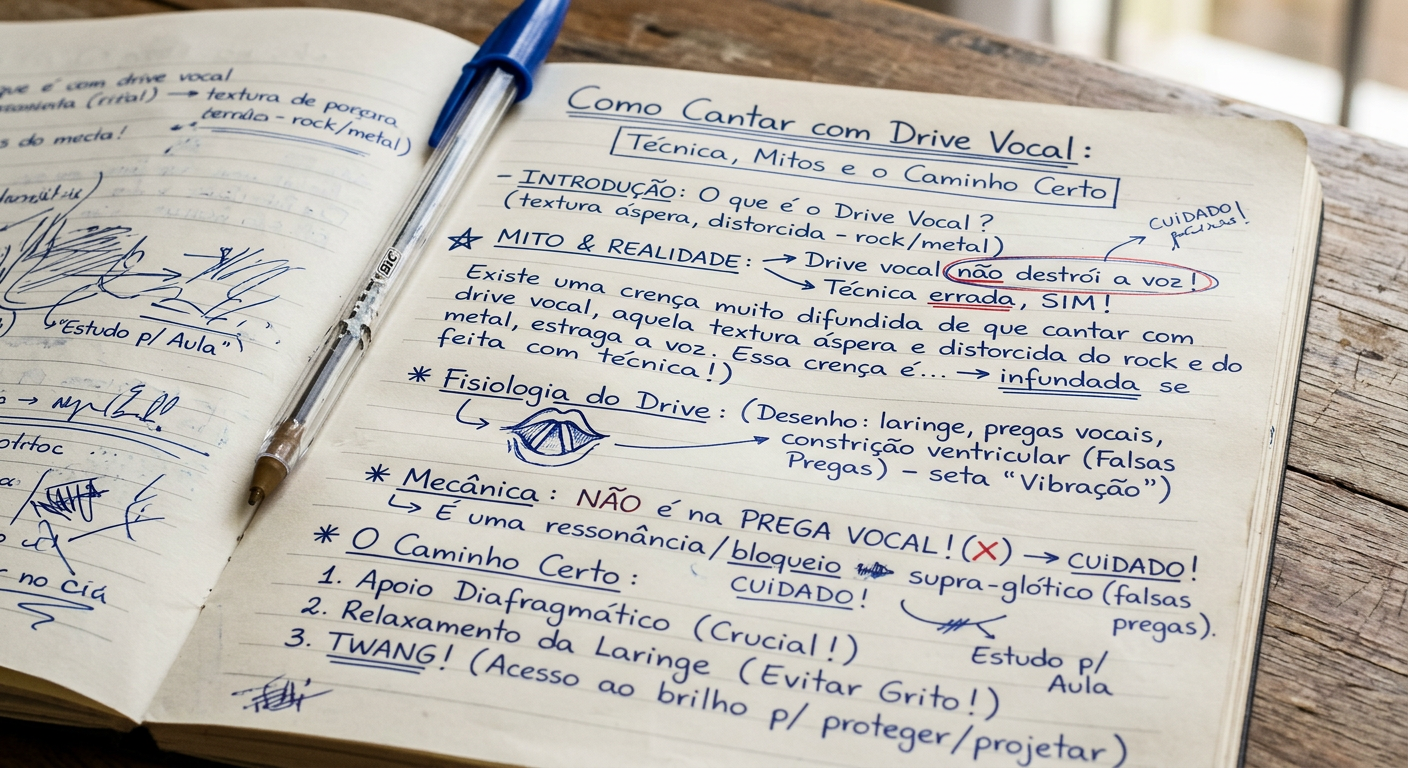 que é com drive vocal
(rital) → textura de
- rock/metal)
"Estudo p/ Aula"
no
BIC
Como Cantar com Drive Vocal:
Técnica, Mitos e o Caminho Certo
- INTRODUÇÃO: O que é o Drive Vocal?
(textura áspera, distorcida - rock/metal)
CUIDADO!
☆ MITO & REALIDADE: → Drive vocal não destrói a voz!
→ Técnica errada, SIM!
Existe uma crença muito difundida de que cantar com
drive vocal, aquela textura áspera e distorcida do rock e do
metal, estraga a voz. Essa crença é... → infundada se
feita com técnica!)
* Fisiologia do Drive: (Desenho: laringe, pregas vocais,
constrição ventricular (Falsas
Pregas) - seta "Vibração")
* Mecânica: NÃO é na PREGA VOCAL! (X) → CUIDADO!
↳ É uma ressonância/bloqueio supra-glótico (falsas
pregas).
CUIDADO!
Estudo p/
Aula
* O Caminho Certo:
1. Apoio Diafragmático (Crucial!)
2. Relaxamento da Laringe (Evitar Grito!)
3. TWANG! (Acesso ao brilho p/ proteger/projetar)